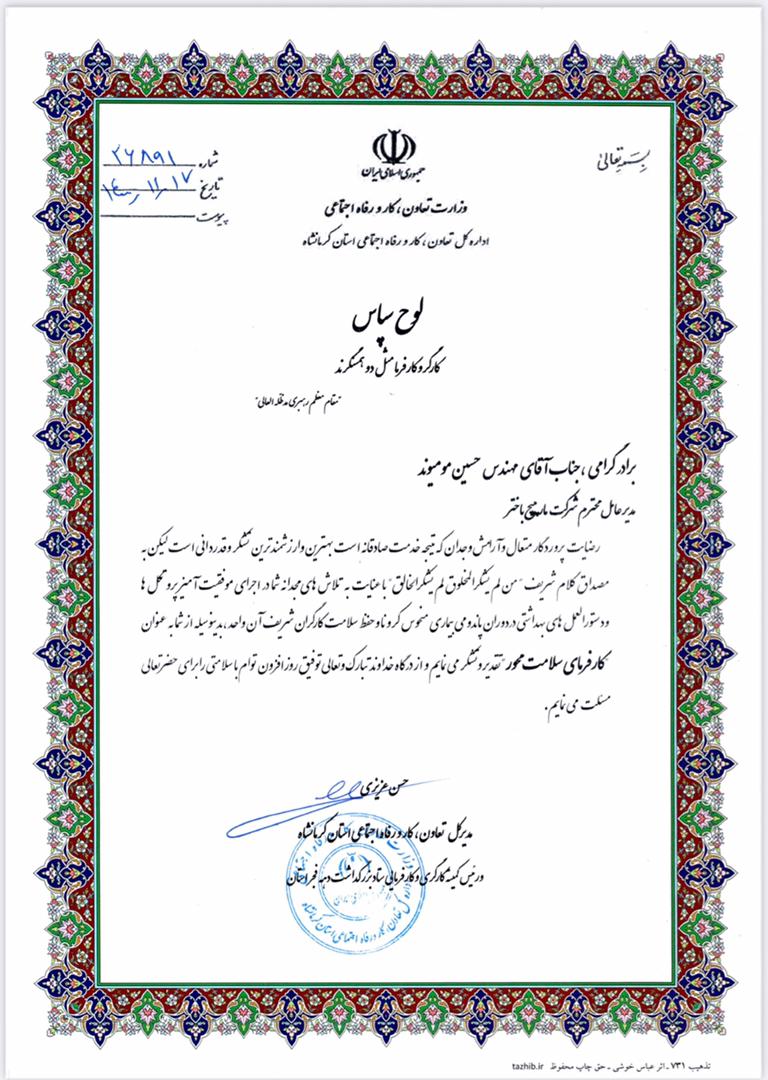 بسمه تعالی
جمهوری اسلامی ایران
وزارت تعاون، کار و رفاه اجتماعی
اداره کل تعاون، کار و رفاه اجتماعی استان کرمانشاه
شماره ۲۶۸۹۱
تاریخ ۱۴۰۰/۱۱/۱۷
پیوست
لوح سپاس
کارگر و کارفرما مثل دو همسنگرند
"مقام معظم رهبری مدظله العالی"
برادر گرامی، جناب آقای مهندس حسین مومیوند
مدیرعامل محترم شرکت باختر
رضایت پروردگار متعال و آرامش وجدان که نتیجه خدمت صادقانه است بهترین و ارزشمندترین تشکر و قدردانی است لیکن به
مصداق کلام شریف "من لم یشکر المخلوق لم یشکر الخالق" با عنایت به تلاش های مجدانه شما در اجرای موفقیت آمیز پروتکل ها
و دستورالعمل های بهداشتی در دوران پاندومی بیماری منحوس کرونا و حفظ سلامت کارگران شریف آن واحد، بدینوسیله از شما به عنوان
"کارفرمای سلامت محور" تقدیر و تشکر می نمایم و از درگاه خداوند تبارک و تعالی توفیق روزافزون توام با سلامتی را برای حضرتعالی
مسئلت می نمایم.
حسن عزیزی
مدیرکل تعاون، کار و رفاه اجتماعی استان کرمانشاه
و رئیس کمیته کارگری و کارفرمایی ستاد بزرگداشت دهه فجر استان
تذهیب ۷۳۱ - اثر عباس خوشی - حق چاپ محفوظ tazhib.ir